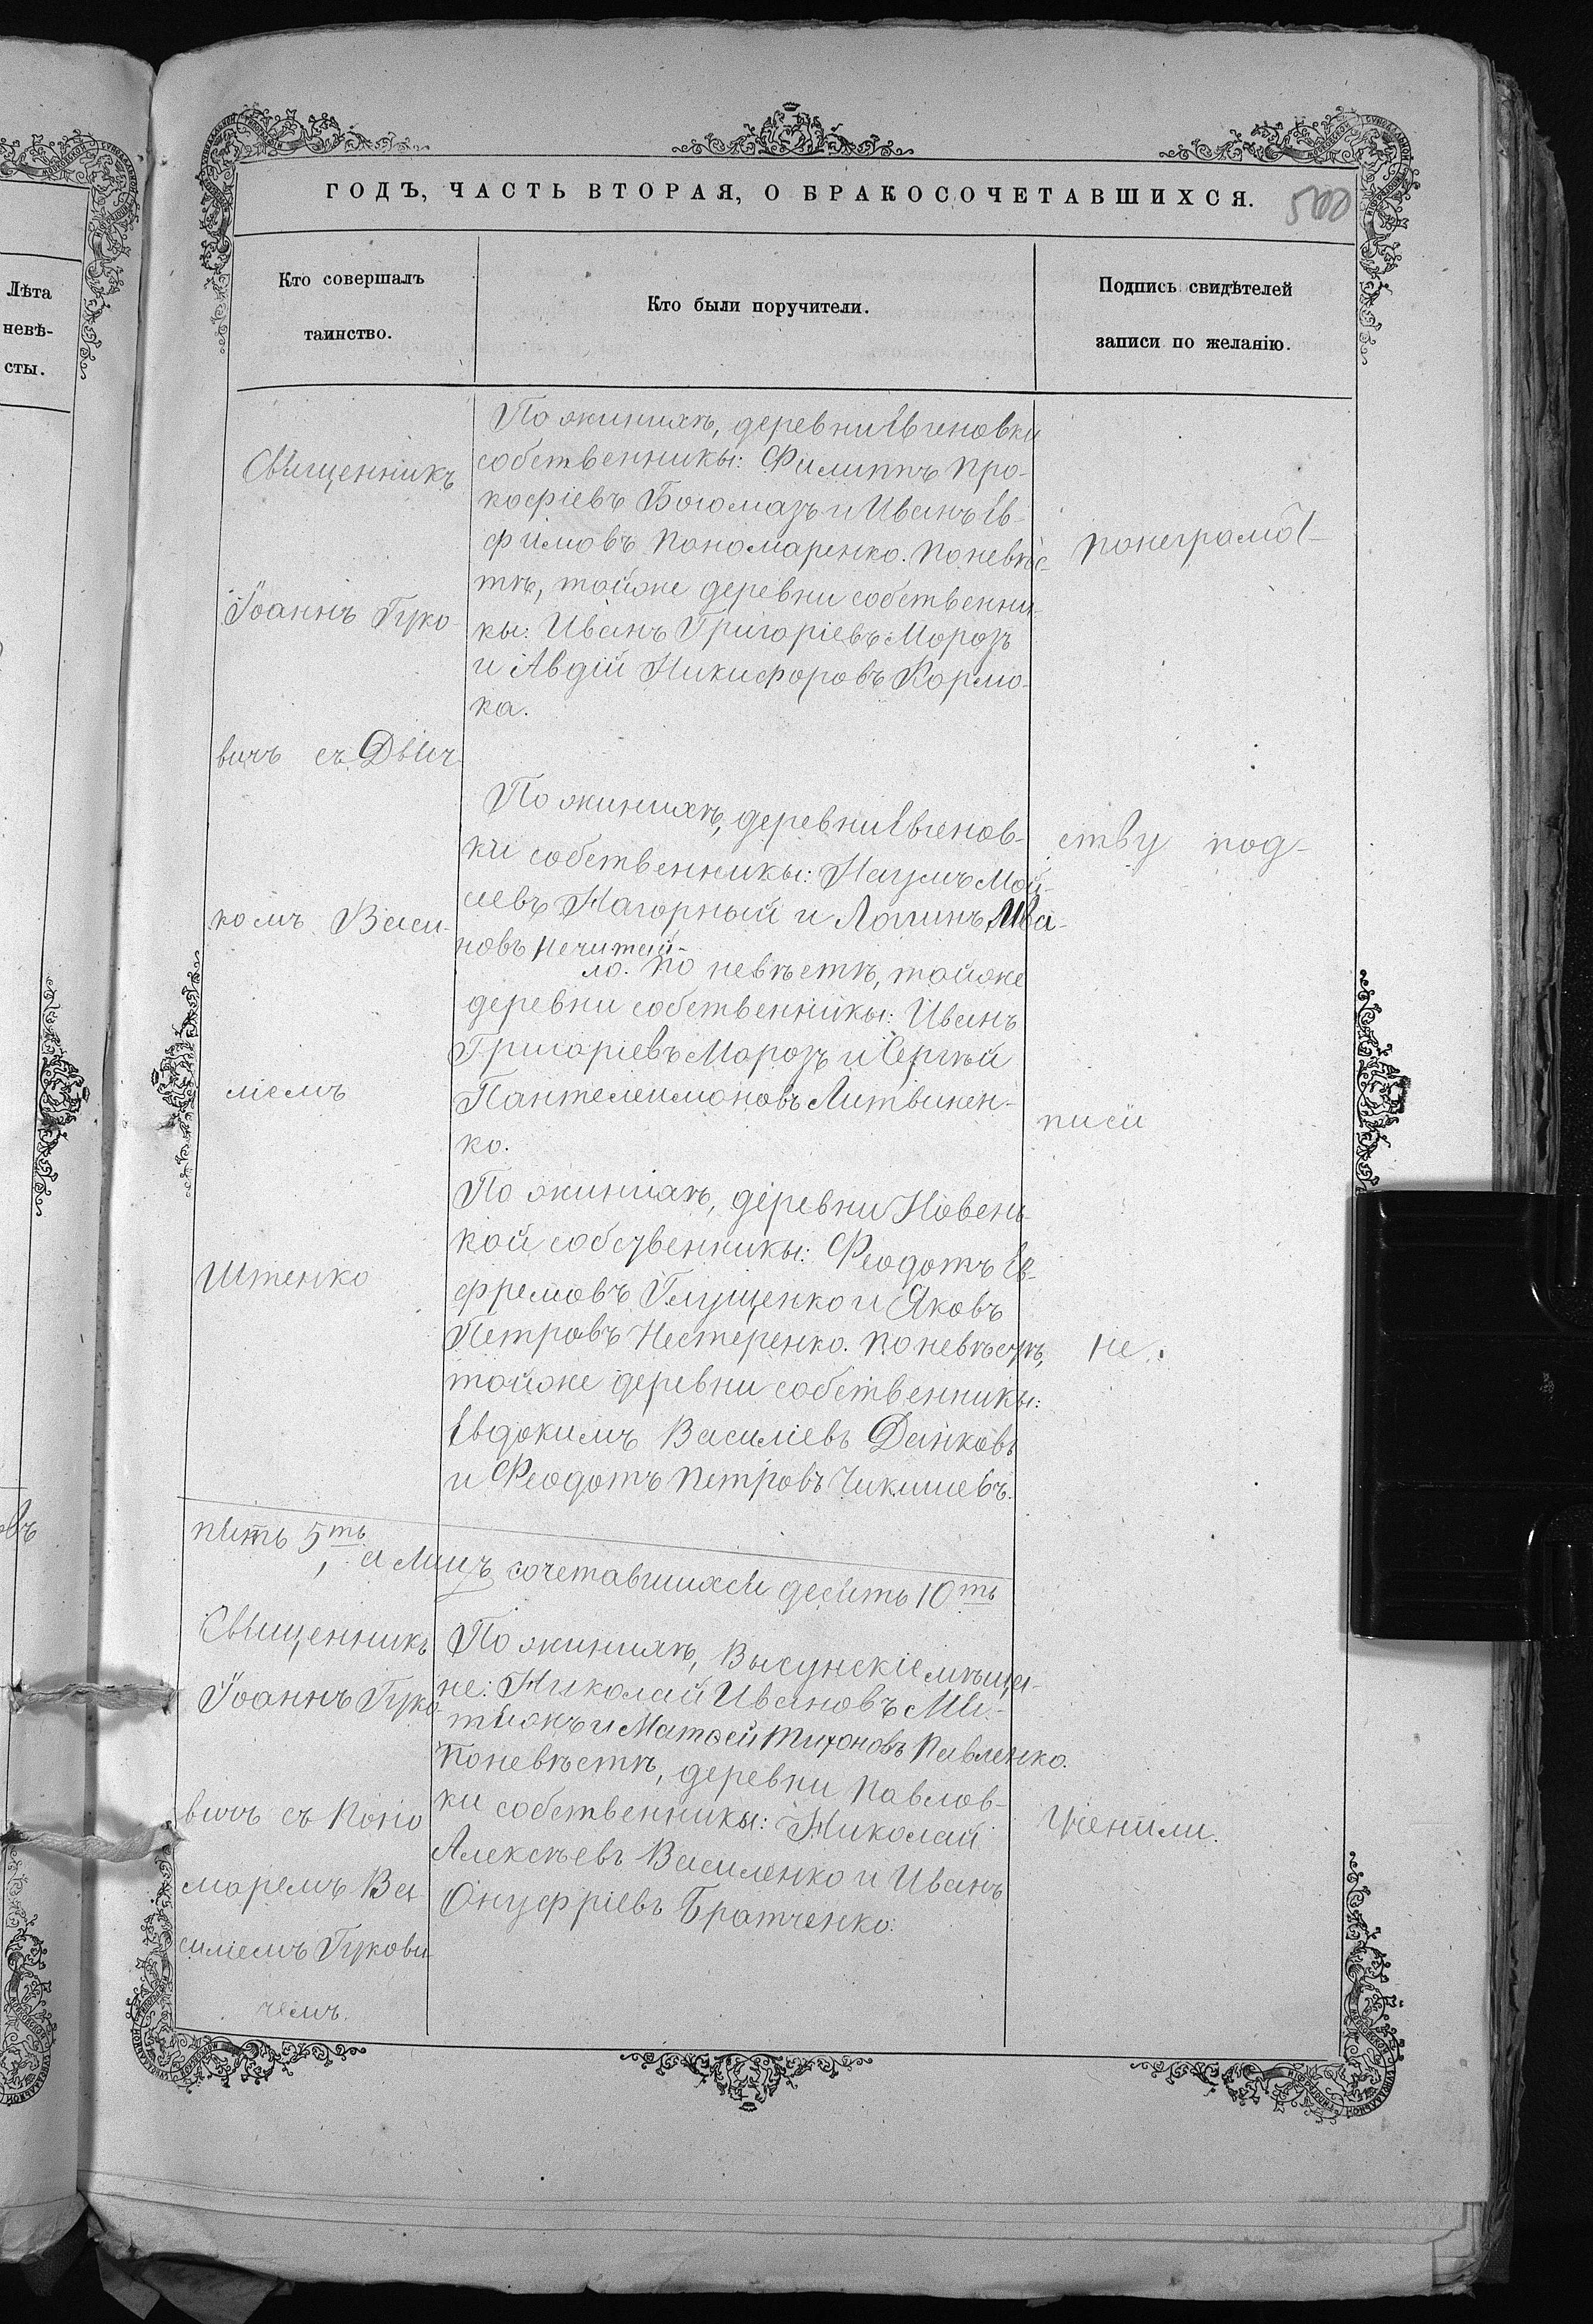 ГОДЪ, ЧАСТЬ ВТОРАЯ, О БРАКОСОЧЕТАВШИХСЯ.
500
Лѣта
невѣ-
сты.
Кто совершалъ
таинство.
Кто были поручители.
Подпись свидѣтелей
записи по желанію.
Священникъ
Іоаннъ Гуко-
вичъ съ Дьяч-
комъ Васи-
ліемъ
Штенко
По женихѣ, деревни Евгеновки
собственники: Филиппъ Про-
кофіевъ Богомазъ и Иванъ Ев-
фимовъ Пономаренко. По невѣс-
тѣ, тойже деревни собственни-
ки: Иванъ Григоріевъ Морозъ
и Авдій Никифоровъ Кормо-
ка.
По женихѣ, деревни Евгенов-
ки собственники: Наумъ Мой-
сіевъ Нагорный и Логинъ Ива-
новъ Нечитай-
ло. По невѣстѣ, тойже
деревни собственники: Иванъ
Григоріевъ Морозъ и Сергѣй
Пантелеимоновъ Литвинен-
ко.
По женихѣ, деревни Новень-
кой собственники: Феодотъ Ев-
фремовъ Глущенко и Яковъ
Петровъ Нестеренко. По невѣстѣ,
тойже деревни собственники:
Евдокимъ Василіевъ Данковъ
и Феодотъ Петровъ Чикишевъ.
понеграмот-
ству под-
писи
не
учинили.
пять 5ть, а лицъ сочетавшихся десять 10ть
Священникъ
Іоаннъ Гуко-
вичъ съ Поно
маремъ Ва
силіемъ Гукови
чемъ.
По женихѣ, Высунскіе мѣща-
не: Николай Ивановъ
и Матѳей Тихоновъ Павленко.
По невѣстѣ, деревни Павлов-
ки собственники: Николай
Алексѣевъ Василенко и Иванъ
Онуфріевъ Братченко.